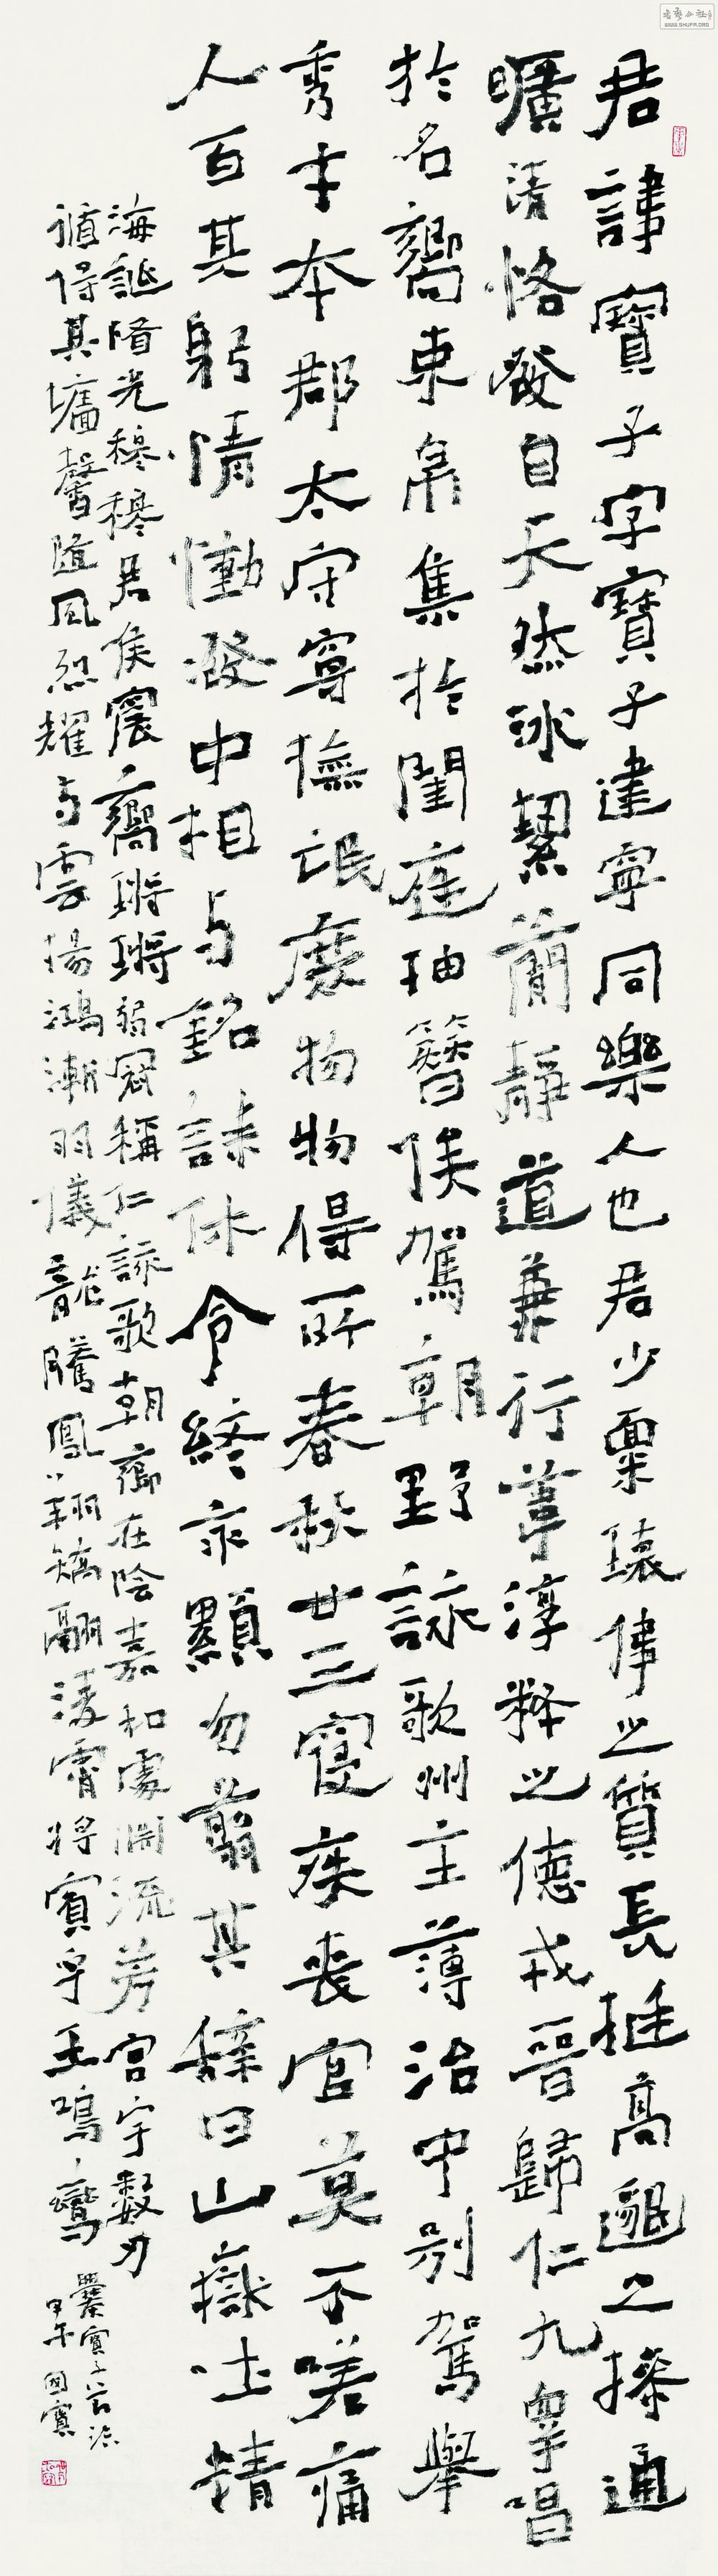 君諱寶子字寶子建寧同樂人也君少稟瓌偉之質長挺高邈之操通
曠清恪發自天然冰絜簡靜道兼行葦淳粹之德戎晉歸仁九皋唱
於名嚮束帛集於閨庭抽簪俟駕朝野詠歌州主薄治中別駕舉
秀才本郡太守寧撫氓庶物物得所春秋廿三寢疾喪官莫不嗟痛
人百其躬情慟發中相与銘誄休令終永顯勿翦其辭曰山嶽吐精
海誕陼光穆穆君侯震嚮鏘鏘弱冠稱仁詠歌朝鄉在陰嘉和處淵流芳宮宇數刃
循得其墉馨隨風烈耀与雲揚鴻漸羽儀龍騰鳳翔矯翮淩霄將賓乎王鳴鸞
爨寶子
甲午國寶
WWW.SHUFA.ORG